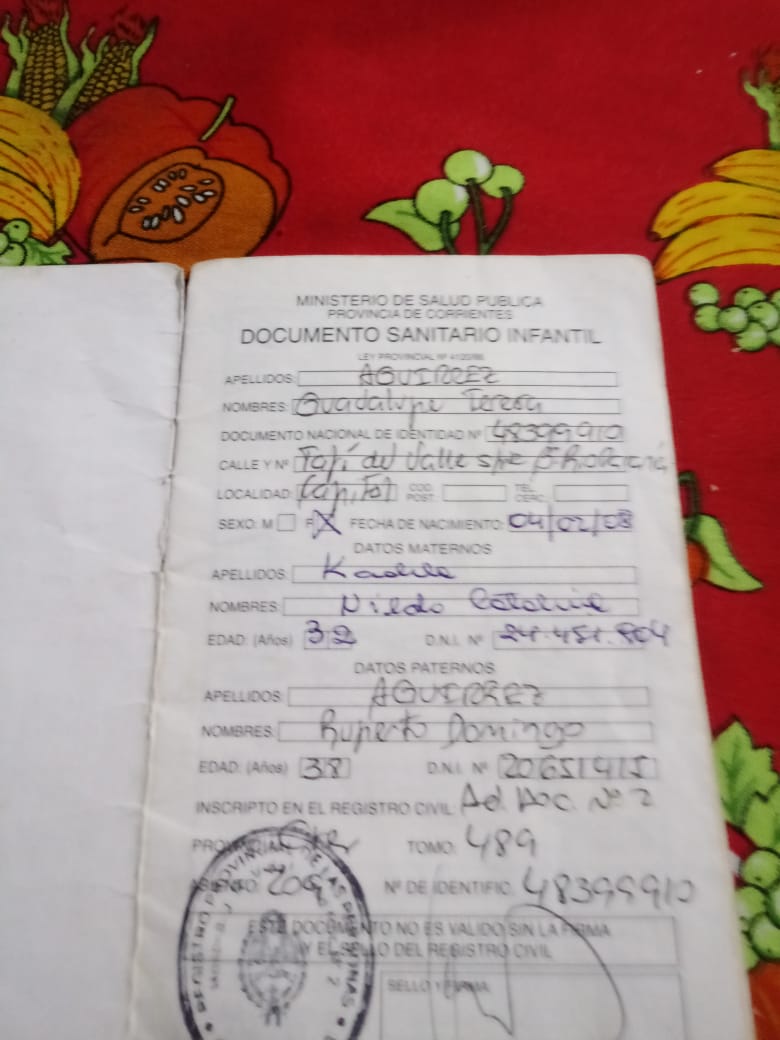 MINISTERIO DE SALUD PUBLICA
PROVINCIA DE CORRIENTES
DOCUMENTO SANITARIO INFANTIL
LEY PROVINCIAL Nº
APELLIDOS: AGUIRREZ
NOMBRES: Guadalupe Teresa
DOCUMENTO NACIONAL DE IDENTIDAD Nº 48399910
CALLE Y Nº Tafí del Valle
LOCALIDAD: Capital COD. POST. TEL. CERC.
SEXO: M F X FECHA DE NACIMIENTO: 04/02/08
DATOS MATERNOS
APELLIDOS:
NOMBRES:
EDAD: (Años) 32 D.N.I. Nº
DATOS PATERNOS
APELLIDOS: AGUIRREZ
NOMBRES: Ruperto Domingo
EDAD: (Años) 38 D.N.I. Nº 20651415
INSCRIPTO EN EL REGISTRO CIVIL: Ad Hoc. Nº 2
PROVINCIA: TOMO: 489
Nº DE IDENTIFIC. 48399910
ESTE DOCUMENTO NO ES VALIDO SIN LA FIRMA
Y EL SELLO DEL REGISTRO CIVIL
SELLO Y FIRMA
REGISTRO PROVINCIAL DE LAS PERSONAS